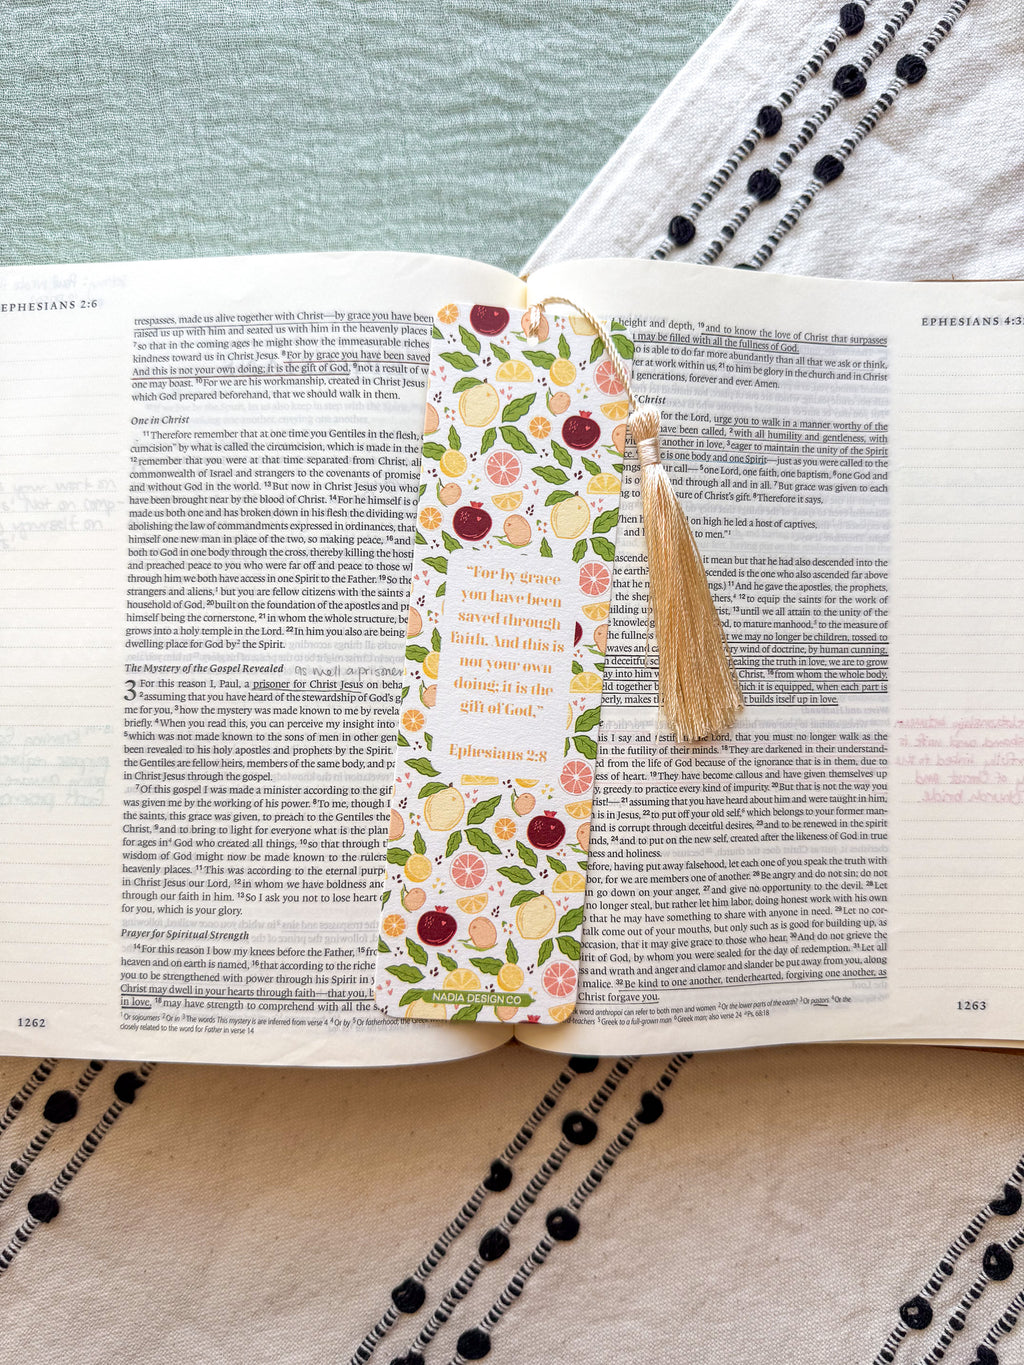 EPHESIANS 2:6
trespasses, made us alive together with Christ—by grace you have been
raised us up with him and seated us with him in the heavenly places i
7so that in the coming ages he might show the immeasurable riches
kindness toward us in Christ Jesus. 8For by grace you have been saved
And this is not your own doing; it is the gift of God, 9not a result of w
one may boast. 10For we are his workmanship, created in Christ Jesus
which God prepared beforehand, that we should walk in them.
One in Christ
11Therefore remember that at one time you Gentiles in the flesh,
cumcision” by what is called the circumcision, which is made in the
12remember that you were at that time separated from Christ, ali
commonwealth of Israel and strangers to the covenants of promise
and without God in the world. 13But now in Christ Jesus you who
have been brought near by the blood of Christ. 14For he himself is o
made us both one and has broken down in his flesh the dividing wa
abolishing the law of commandments expressed in ordinances, that
himself one new man in place of the two, so making peace, 16and
both to God in one body through the cross, thereby killing the host
and preached peace to you who were far off and peace to those wh
through him we both have access in one Spirit to the Father. 19So the
strangers and aliens,1 but you are fellow citizens with the saints a
household of God, 20built on the foundation of the apostles and pr
himself being the cornerstone, 21in whom the whole structure, be
grows into a holy temple in the Lord. 22In him you also are being
dwelling place for God by2 the Spirit.
The Mystery of the Gospel Revealed as well a prisoner
3 For this reason I, Paul, a prisoner for Christ Jesus on beha
2assuming that you have heard of the stewardship of God's g
me for you, 3how the mystery was made known to me by revela
briefly. 4When you read this, you can perceive my insight into
5which was not made known to the sons of men in other gen
been revealed to his holy apostles and prophets by the Spirit.
the Gentiles are fellow heirs, members of the same body, and pa
in Christ Jesus through the gospel.
7Of this gospel I was made a minister according to the gif
was given me by the working of his power. 8To me, though I
the saints, this grace was given, to preach to the Gentiles the
Christ, 9and to bring to light for everyone what is the plan
for ages in4 God who created all things, 10so that through t
wisdom of God might now be made known to the rulers
heavenly places. 11This was according to the eternal purp
in Christ Jesus our Lord, 12in whom we have boldness and
through our faith in him. 13So I ask you not to lose heart
for you, which is your glory.
Prayer for Spiritual Strength
14For this reason I bow my knees before the Father, 15fr
heaven and on earth is named, 16that according to the riche
you to be strengthened with power through his Spirit in y
Christ may dwell in your hearts through faith—that you, b
in love, 18may have strength to comprehend with all the s
1Or sojourners 2Or in 3The words This mystery is are inferred from verse 4 4Or by 5Or fatherhood, the
closely related to the word for Father in verse 14
1262
“For by grace
you have been
saved through
faith. And this is
not your own
doing; it is the
gift of God,”
Ephesians 2:8
NADIA DESIGN CO
EPHESIANS 4:3
height and depth, 19and to know the love of Christ that surpasses
may be filled with all the fullness of God.
o is able to do far more abundantly than all that we ask or think,
er at work within us, 21to him be glory in the church and in Christ
generations, forever and ever. Amen.
Christ
for the Lord, urge you to walk in a manner worthy of the
have been called, 2with all humility and gentleness, with
another in love, 3eager to maintain the unity of the Spirit
e is one body and one Spirit—just as you were called to the
ongs r call— 5one Lord, one faith, one baptism, 6one God and
through all and in all. 7But grace was given to each
sure of Christ's gift. 8Therefore it says,
hen h on high he led a host of captives,
and h n to men.”1
ascende it mean but that he had also descended into the
he earth? scended is the one who also ascended far above
that he m gs.) 11And he gave the apostles, the prophets,
the shep 12to equip the saints for the work of
ilding up 13until we all attain to the unity of the
knowled to mature manhood,5 to the measure of
the fullnes t we may no longer be children, tossed to
waves and ca ery wind of doctrine, by human cunning,
n deceitful s eaking the truth in love, we are to grow
ay into him w Christ, 16from whom the whole body,
eld together b ich it is equipped, when each part is
perly, makes th builds itself up in love.
his I say and testify in the Lord, that you must no longer walk as the
in the futility of their minds. 18They are darkened in their understand-
d from the life of God because of the ignorance that is in them, due to
ess of heart. 19They have become callous and have given themselves up
y, greedy to practice every kind of impurity. 20But that is not the way you
rist!— 21assuming that you have heard about him and were taught in him,
is in Jesus, 22to put off your old self,6 which belongs to your former man-
and is corrupt through deceitful desires, 23and to be renewed in the spirit
nds, 24and to put on the new self, created after the likeness of God in true
ness and holiness.
efore, having put away falsehood, let each one of you speak the truth with
or, for we are members one of another. 26Be angry and do not sin; do not
n go down on your anger, 27and give no opportunity to the devil. 28Let
no longer steal, but rather let him labor, doing honest work with his own
that he may have something to share with anyone in need. 29Let no cor-
alk come out of your mouths, but only such as is good for building up, as
occasion, that it may give grace to those who hear. 30And do not grieve the
pirit of God, by whom you were sealed for the day of redemption. 31Let all
ss and wrath and anger and clamor and slander be put away from you, along
malice. 32Be kind to one another, tenderhearted, forgiving one another, as
Christ forgave you.
k word anthropoi can refer to both men and women 2Or the lower parts of the earth? 3Or pastors 4Or the
-teachers 5Greek to a full-grown man 6Greek man; also verse 24 aPs. 68:18
1263